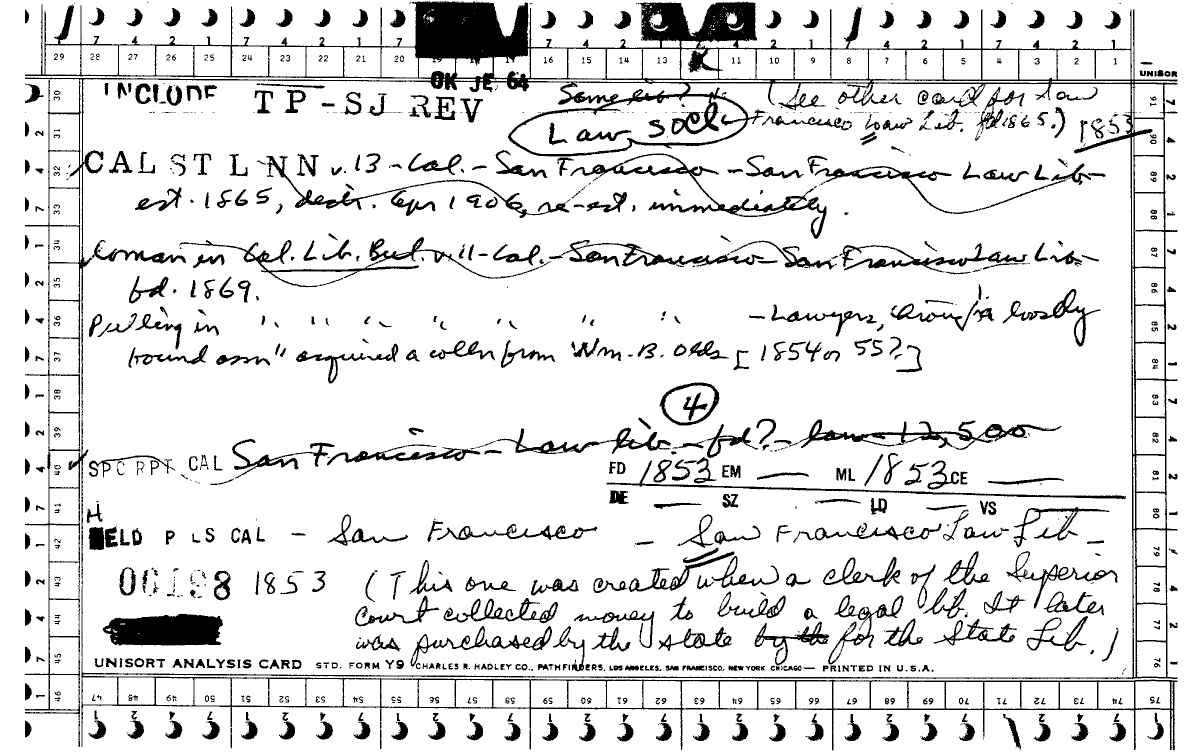 7 4 2 1 7 4 2 1 7 4 2 1 7 4 2 1 7 4 2 1
29 28 27 26 25 24 23 22 21 20 16 15 14 13 12 11 10 9 8 7 6 5 4 3 2 1
UNISOR
OK JE 64
INCLUDE TP-SJ REV
Same lib?
(See other card for Law
Law, socl
Francisco Law Lib. fd 1865.) 1853
CAL ST L NN v. 13 - Cal. - San Francisco - San Francisco Law Lib -
est. 1865, destr. Apr 1906, re-est. immediately.
Coman in Cal. Lib. Bul. v. 11 - Cal. - San Francisco - San Francisco Law Lib -
fd. 1869.
in " " " " " " " - Lawyers, loosely
bound assn" acquired a colln from Wm. B. Olds [1854 or 55?]
4
SPC RPT CAL San Francisco - Law lib. - fd? - law - 12,500
FD 1853 EM — ML 1853 CE —
DE — SZ — LD — VS —
HELD P LS CAL - San Francisco - San Francisco Law Lib -
06198 1853 (This one was created when a clerk of the Superior
court collected money to build a legal lib. It later
was purchased by the state by the for the State Lib.)
UNISORT ANALYSIS CARD STD. FORM Y9 CHARLES R. HADLEY CO., PATHFINDERS, LOS ANGELES, SAN FRANCISCO, NEW YORK CHICAGO — PRINTED IN U.S.A.
47 48 49 50 51 52 53 54 55 56 57 58 59 60 61 62 63 64 65 66 67 68 69 70 71 72 73 74 75